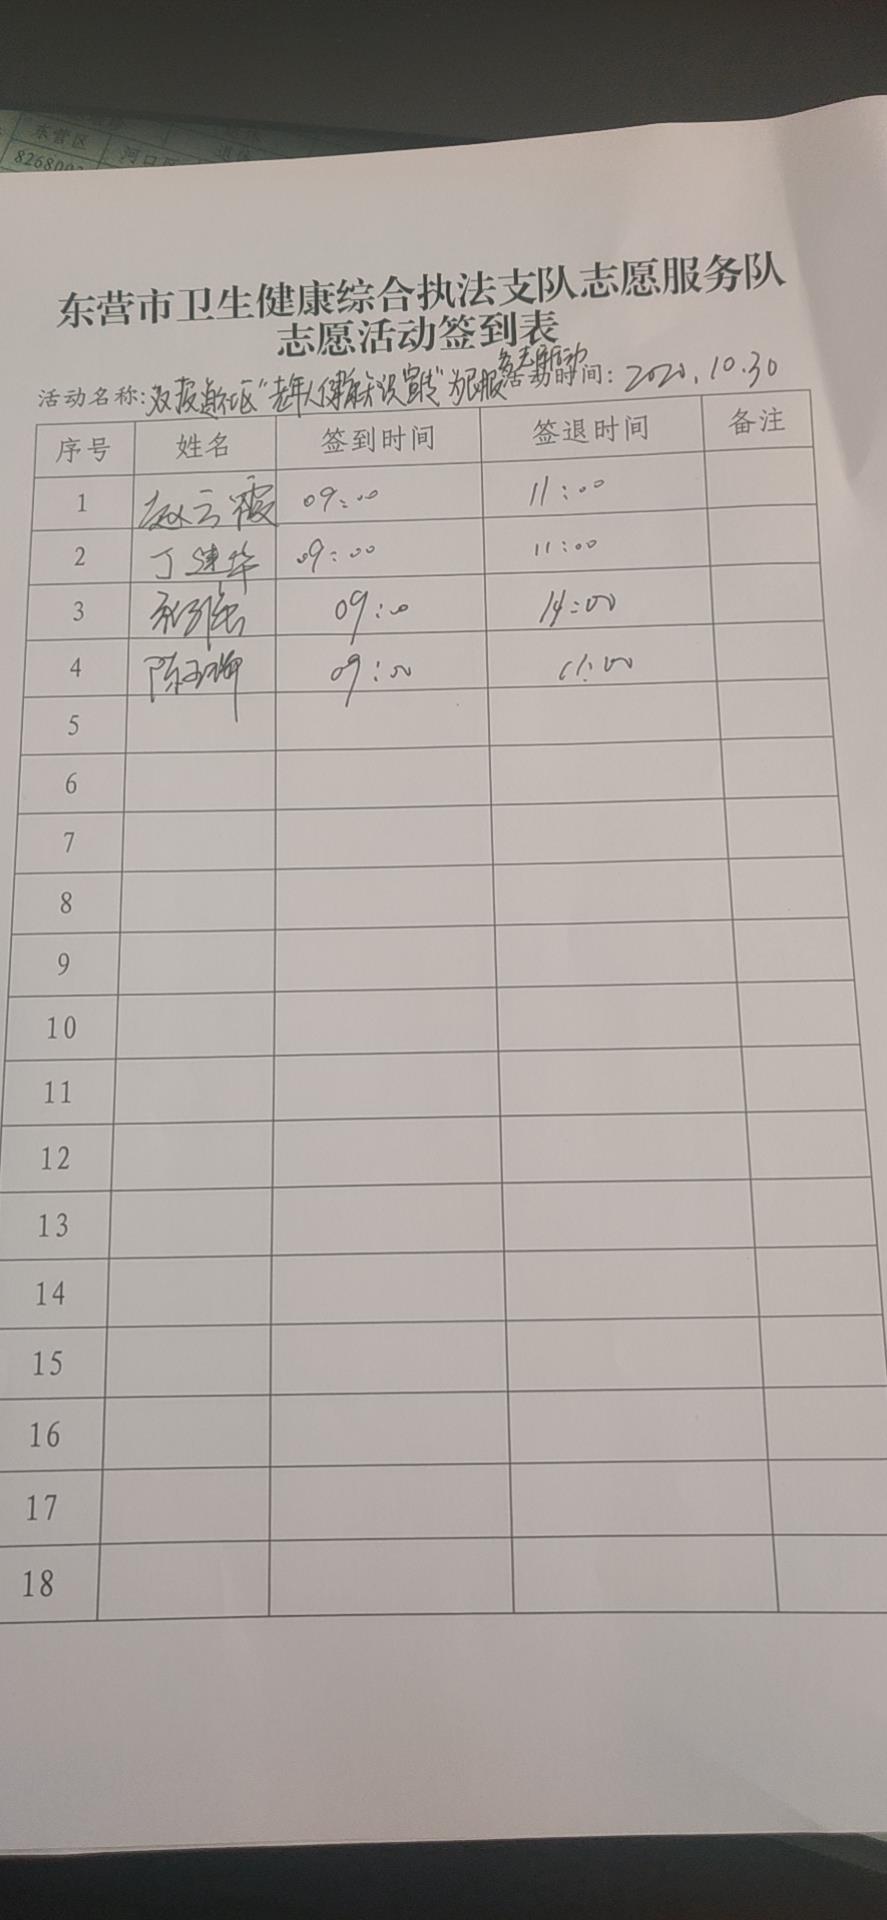 东营区
826800
河口区
东营市卫生健康综合执法支队志愿服务队
志愿活动签到表
务志愿活动
活动名称:双报到社区“老年人健康知识宣传”为民服 活动时间: 2020.10.30
序号 姓名 签到时间 签退时间 备注
1 赵云霞 09:00 11:00
2 丁建华 09:00 11:00
3 09:00 11:00
4 陈 09:00 11:00
5
6
7
8
9
10
11
12
13
14
15
16
17
18